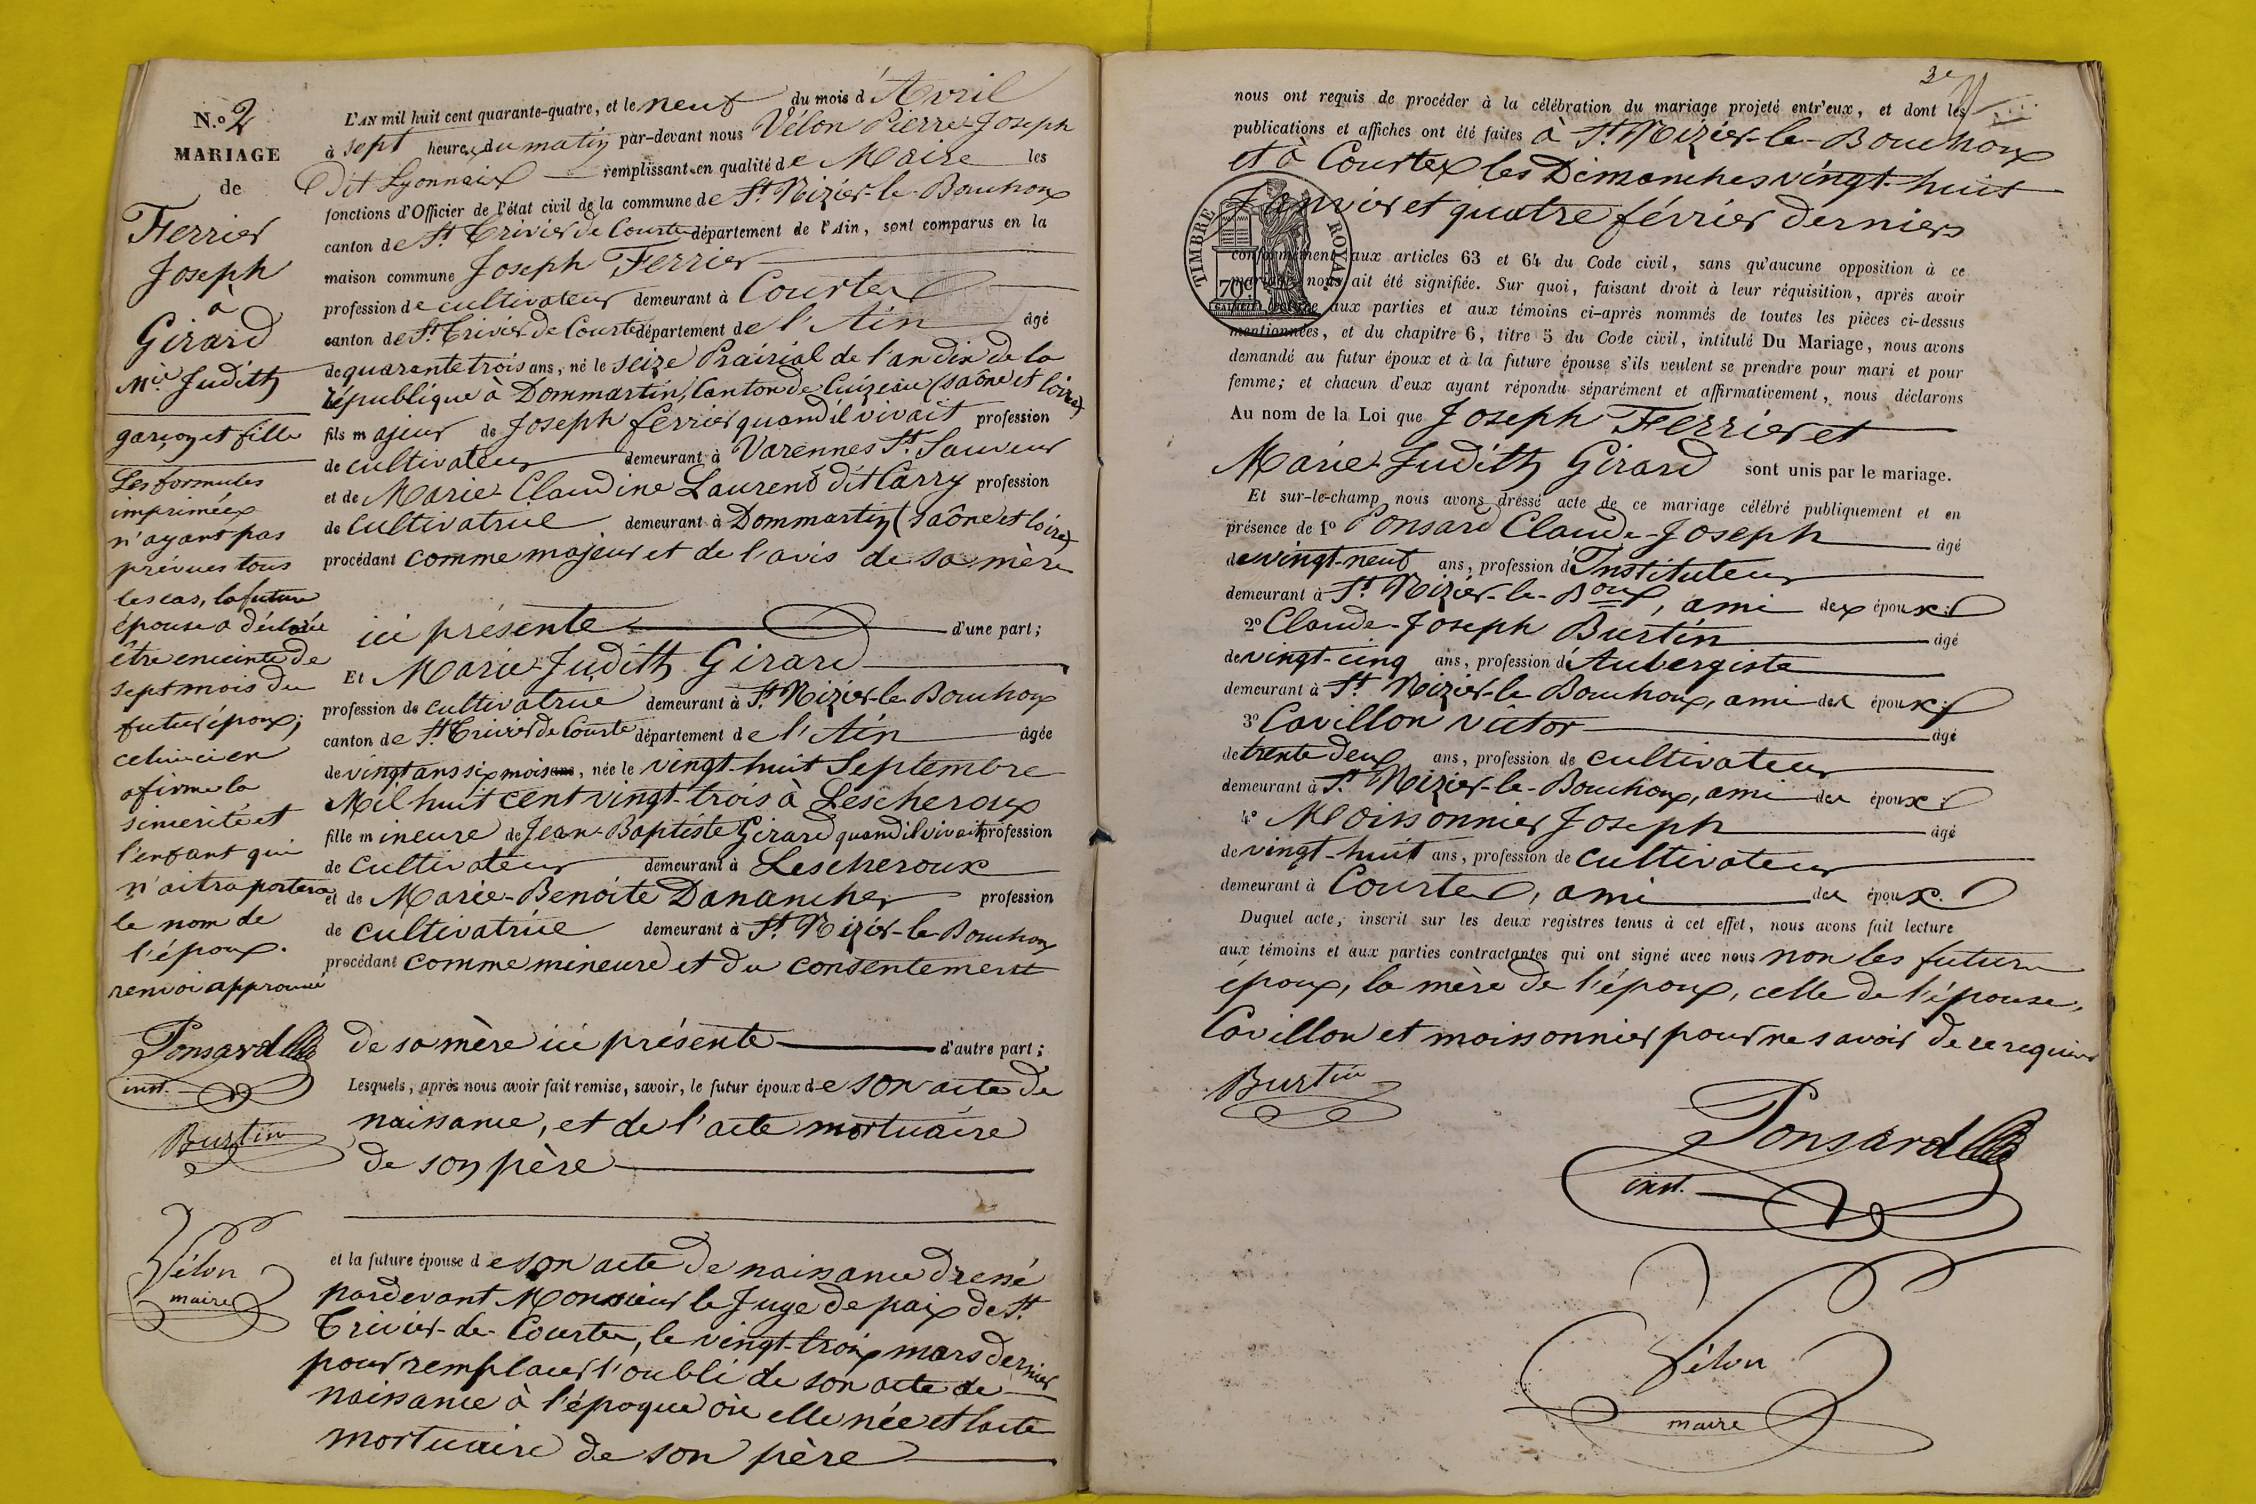 N.o 2
MARIAGE
de
Ferrier
Joseph
à
Girard
Mie Judith
garçon et fille
Les formules
imprimées
n'ayant pas
prévues tous
les cas, la future
épouse a déclarée
être enceinte de
sept mois du
futur époux;
celui-ci en
afirme la
sincérité et
l'enfant qui
n'aitra portera
le nom de
l'époux.
renvoi approuvé
Ponsard
inst.
Burtin
Vélon
maire
L'AN mil huit cent quarante-quatre, et le neuf du mois d'Avril
à sept heures du matin par-devant nous Vélon Pierre-Joseph
Dit Lyonnais remplissant en qualité de Maire les
fonctions d'Officier de l'état civil de la commune de St Nizier-le-Bouchoux
canton de St Trivier de Courtes département de l'Ain, sont comparus en la
maison commune Joseph Ferrier
profession de cultivateur demeurant à Courtes
canton de St Trivier de Courtes département de l'Ain âgé
de quarante trois ans, né le seize Prairial de l'an dix de la
république à Dommartin, Canton de Cuizeau (saône et loire)
fils majeur de Joseph ferrier quand il vivait profession
de cultivateur demeurant à Varennes St. Sauveur
et de Marie-Claudine Laurent dit Carry profession
de cultivatrice demeurant à Dommartin (saône et loire)
procédant comme majeur et de l'avis de sa mère
ici présente d'une part;
Et Marie-Judith Girard
profession de cultivatrice demeurant à St. Nizier-le-Bouchoux
canton de St Trivier de Courtes département de l'Ain âgée
de vingt ans six mois ans, née le vingt-huit Septembre
Mil huit cent vingt-trois à Lescheroux
fille mineure de Jean-Baptiste Girard quand il vivait profession
de cultivateur demeurant à Lescheroux
et de Marie-Benoite Danancher profession
de cultivatrice demeurant à St. Nizier-le-Bouchoux
procédant comme mineure et du consentement
de sa mère ici présente d'autre part;
Lesquels, après nous avoir fait remise, savoir, le futur époux de son acte de
naissance, et de l'acte mortuaire
de son père
et la future épouse de son acte de naissance dressé
pardevant Monsieur le Juge de paix de St.
Trivier-de-Courtes, le vingt-trois mars dernier
pour remplacer l'oubli de son acte de
naissance à l'époque où elle née et l'acte
mortuaire de son père
3e
nous ont requis de procéder à la célébration du mariage projeté entr'eux, et dont les
publications et affiches ont été faites à St. Nizier-le-Bouchoux
et à Courtes les Dimanches vingt-huit
Janvier et quatre février derniers
TIMBRE ROYAL
70c
conformément aux articles 63 et 64 du Code civil, sans qu'aucune opposition à ce
mariage nous ait été signifiée. Sur quoi, faisant droit à leur réquisition, après avoir
lecture aux parties et aux témoins ci-après nommés de toutes les pièces ci-dessus
mentionnées, et du chapitre 6, titre 5 du Code civil, intitulé Du Mariage, nous avons
demandé au futur époux et à la future épouse s'ils veulent se prendre pour mari et pour
femme; et chacun d'eux ayant répondu séparément et affirmativement, nous déclarons
Au nom de la Loi que Joseph Ferrier et
Marie-Judith Girard sont unis par le mariage.
Et sur-le-champ nous avons dressé acte de ce mariage célébré publiquement et en
présence de 1o Ponsard Claude-Joseph âgé
de vingt-neuf ans, profession d'Instituteur
demeurant à St. Nizier-le-Boux, ami des époux.
2o Claude-Joseph Burtin âgé
de vingt-cinq ans, profession d'Aubergiste
demeurant à St. Nizier-le-Bouchoux, ami des époux.
3o Cavillon victor âgé
de trente deux ans, profession de cultivateur
demeurant à St. Nizier-le-Bouchoux, ami des époux.
4o Moissonnier Joseph âgé
de vingt-huit ans, profession de cultivateur
demeurant à Courtes, ami des époux.
Duquel acte, inscrit sur les deux registres tenus à cet effet, nous avons fait lecture
aux témoins et aux parties contractantes qui ont signé avec nous non les futurs
époux, la mère de l'époux, celle de l'épouse,
Cavillon et moissonnier pour ne savoir de ce requis
Burtin
Ponsard
inst.
Vélon
maire